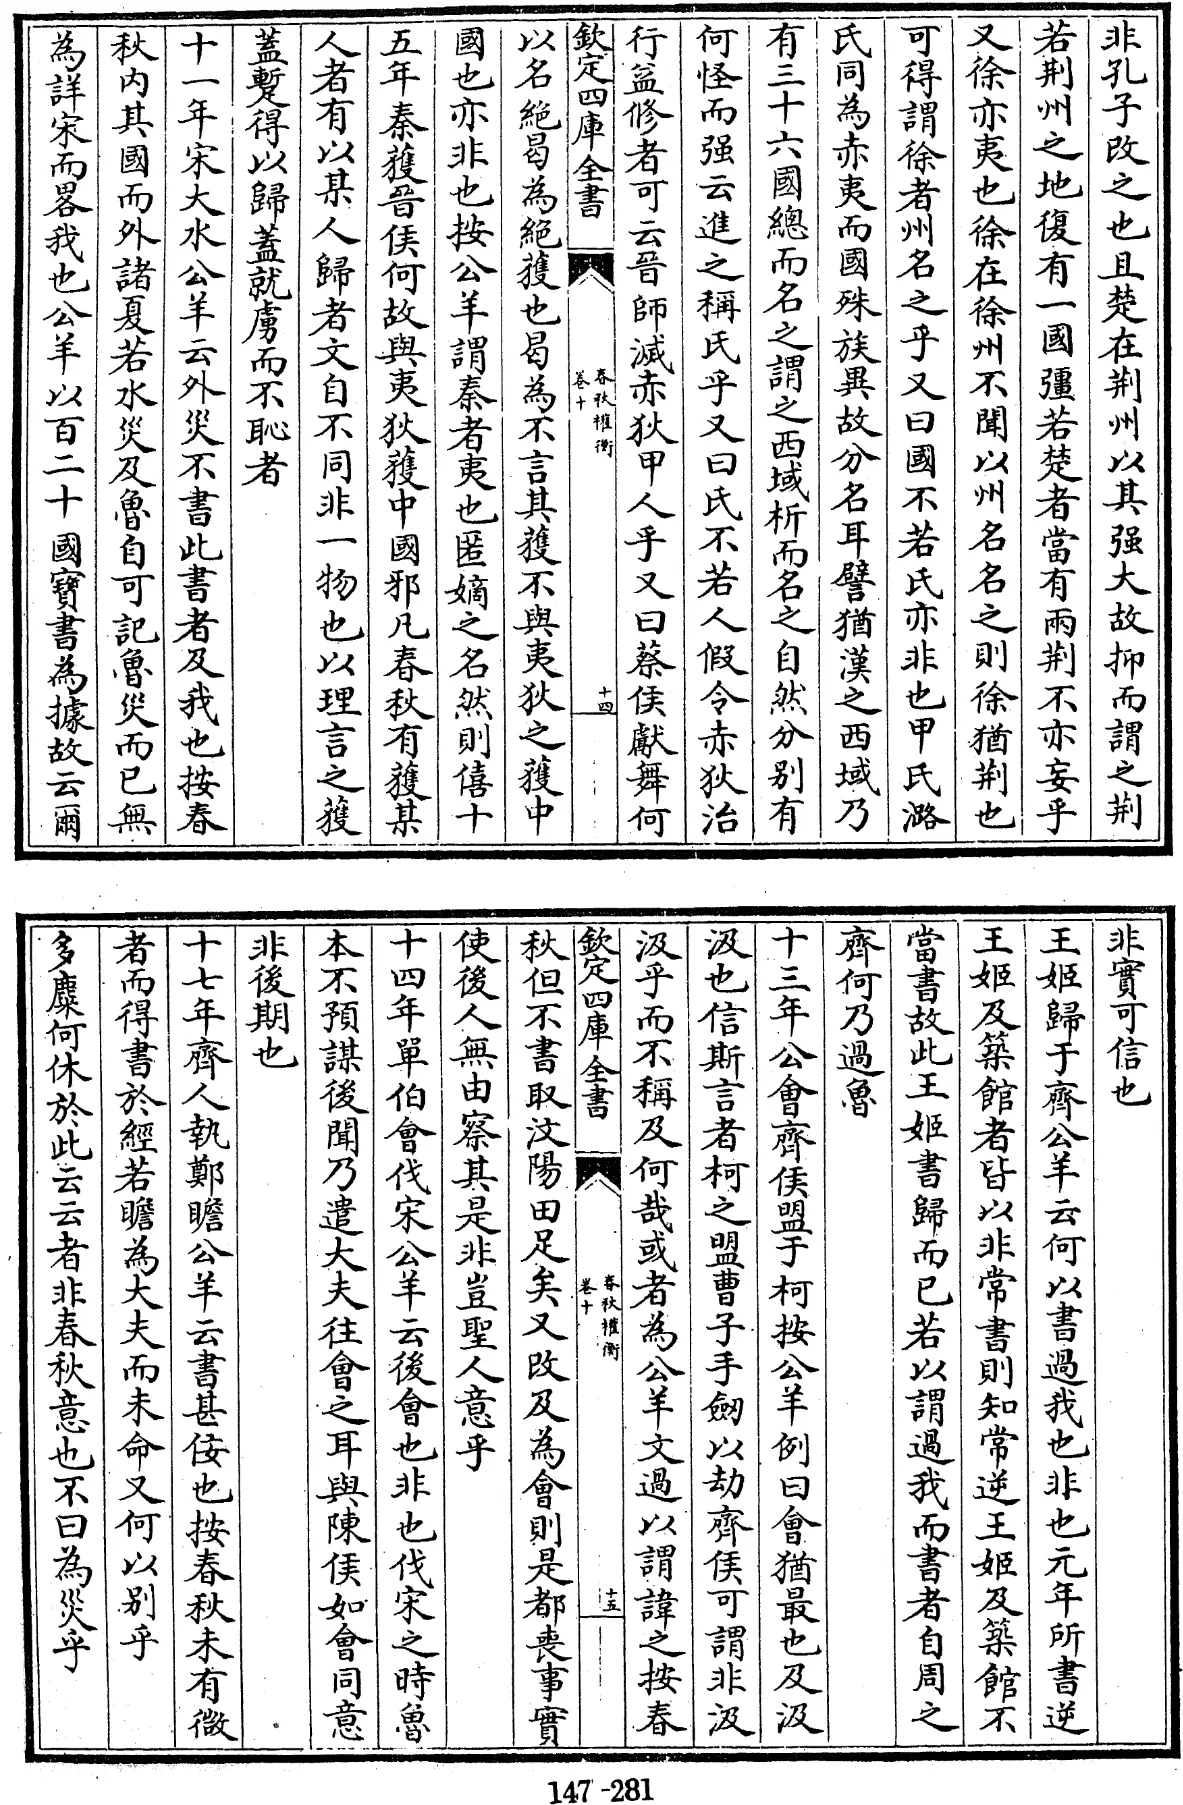 非孔子改之也且楚在荆州以其强大故抑而謂之荆
若荆州之地復有一國彊若楚者當有兩荆不亦妄乎
又徐亦夷也徐在徐州不聞以州名名之則徐猶荆也
可得謂徐者州名之乎又曰國不若氏亦非也甲氏潞
氏同為赤夷而國殊族異故分名耳譬猶漢之西域乃
有三十六國總而名之謂之西域析而名之自然分別有
何怪而强云進之稱氏乎又曰氏不若人假令赤狄治
行益修者可云晉師滅赤狄甲人乎又曰蔡侯獻舞何
欽定四庫全書
春秋權衡
卷十
十四
以名絶曷為絶獲也曷為不言其獲不與夷狄之獲中
國也亦非也按公羊謂秦者夷也匿嫡之名然則僖十
五年秦獲晉侯何故與夷狄獲中國邪凡春秋有獲某
人者有以某人歸者文自不同非一物也以理言之獲
蓋蹔得以歸蓋就虜而不恥者
十一年宋大水公羊云外災不書此書者及我也按春
秋内其國而外諸夏若水災及魯自可記魯災而已無
為詳宋而畧我也公羊以百二十國寶書為據故云爾
非實可信也
王姬歸于齊公羊云何以書過我也非也元年所書逆
王姬及築館者皆以非常書則知常逆王姬及築館不
當書故此王姬書歸而已若以謂過我而書者自周之
齊何乃過魯
十三年公會齊侯盟于柯按公羊例曰會猶最也及汲
汲也信斯言者柯之盟曹子手劔以劫齊侯可謂非汲
汲乎而不稱及何哉或者為公羊文過以謂諱之按春
欽定四庫全書
春秋權衡
卷十
十五
秋但不書取汶陽田足矣又改及為會則是都喪事實
使後人無由察其是非豈聖人意乎
十四年單伯會伐宋公羊云後會也非也伐宋之時魯
本不預謀後聞乃遣大夫往會之耳與陳侯如會同意
非後期也
十七年齊人執鄭瞻公羊云書甚佞也按春秋未有微
者而得書於經若瞻為大夫而未命又何以別乎
多麋何休於此云云者非春秋意也不曰為災乎
147-281